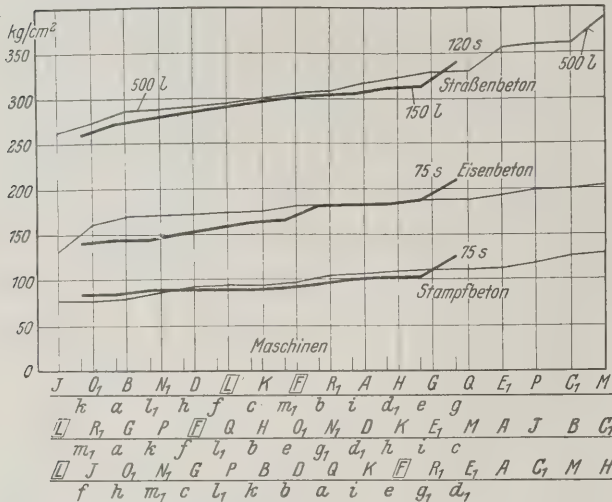 kg/cm²
350
300
250
200
150
100
50
0
500 l
120 s
Straßenbeton
500 l
150 l
75 s Eisenbeton
75 s
Stampfbeton
Maschinen
J O₁ B N₁ D L K F R₁ A H G Q E₁ P C₁ M
k a l₁ h f c m₁ b i d₁ e g
L R₁ G P F Q H O₁ N₁ D K E₁ M A J B C₁
m₁ a k f l₁ b e g₁ d₁ h i c
L J O₁ N₁ G P B D Q K F R₁ E₁ A C₁ M H
f h m₁ c l₁ k b a i e g d₁